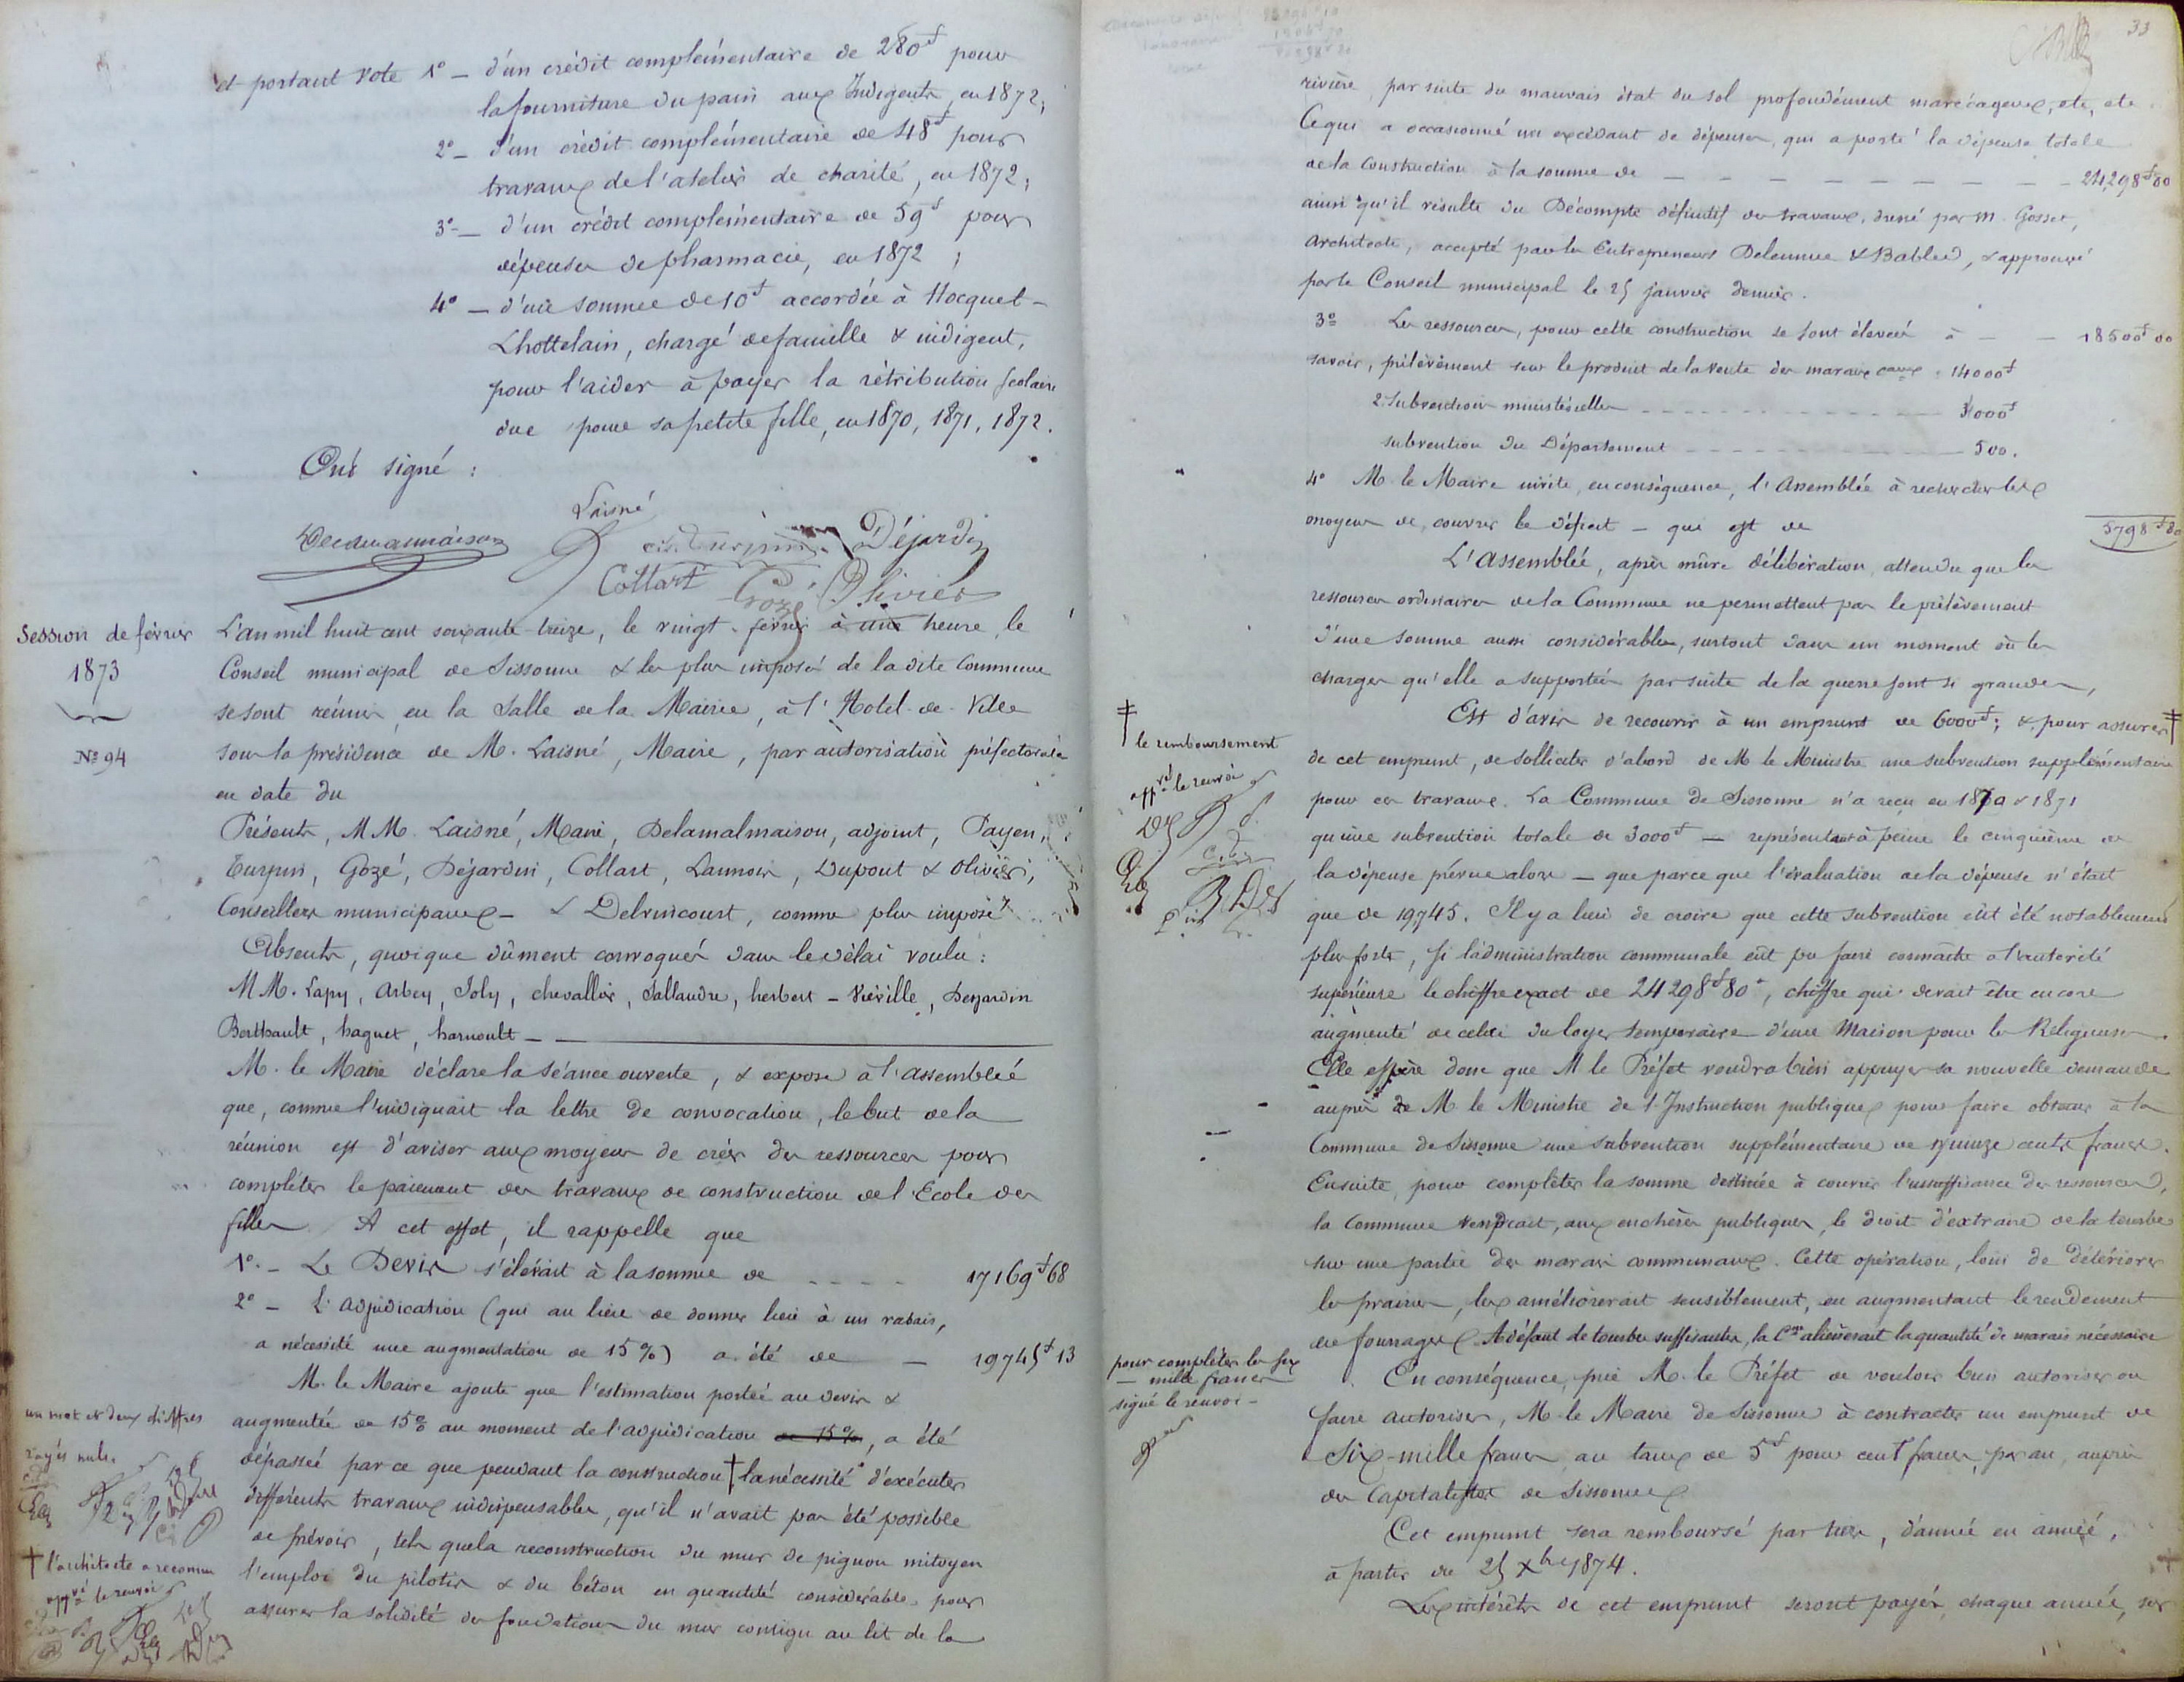 et portant vote 1° — d'un crédit complémentaire de 280f pour
la fourniture du pain aux Indigents, en 1872;
2° — d'un crédit complémentaire de 48f pour
travaux de l'atelier de charité, en 1872;
3° — d'un crédit complémentaire de 59f pour
dépenses de pharmacie, en 1872;
4° — d'une somme de 10f accordée à Hocquet-
Lhottelain, chargé de famille & indigent,
pour l'aider à payer la rétribution scolaire
due pour sa petite fille, en 1870, 1871, 1872.
Ont signé :
Laisné
Delamalmaison Turpin Déjardin
Collart Gozé Olivier
Session de février
1873
N° 94
L'an mil huit cent soixante-treize, le vingt-février à une heure, le
Conseil municipal de Sissonne & les plus imposés de la dite Commune
se sont réunis en la Salle de la Mairie, à l'Hotel-de-Ville
sous la présidence de M. Laisné, Maire, par autorisation préfectorale
en date du
Présents, MM. Laisné, Maire, Delamalmaison, adjoint, Payen,
Turpin, Gozé, Déjardin, Collart, Lannois, Dupont & Olivier,
Conseillers municipaux — & Delvincourt, comme plus imposé
Absents, quoique dûment convoqués dans le délai voulu :
MM. Lapy, Arbey, Joly, chevallier, Sallandre, herbert-Viéville, Desjardin
Berthault, haguet, harnoult —
M. le Maire déclare la séance ouverte, & expose à l'assemblée
que, comme l'indiquait la lettre de convocation, le but de la
réunion est d'aviser aux moyens de créer des ressources pour
compléter le paiement des travaux de construction de l'Ecole des
filles. A cet effet, il rappelle que
1° — Le Devis s'élevait à la somme de - - - - 17169f68
2° — L'adjudication (qui au lieu de donner lieu à un rabais,
a nécessité une augmentation de 15%) a été de — 19745f13
M. le Maire ajoute que l'estimation portée au devis &
augmentée de 15% au moment de l'adjudication de 15%, a été
dépassée par ce que pendant la construction † la nécessité d'exécuter
différents travaux indispensables, qu'il n'avait pas été possible
de prévoir, tels que la reconstruction du mur de pignon mitoyen
l'emploi du pilotis & du béton en quantité considérable pour
assurer la solidité des fondations du mur contigu au lit de la
un mot et deux chiffres
rayés nuls.
† l'architecte a reconnu
appvé le renvoi
33
rivière, par suite du mauvais état du sol profondément marécageux, etc, etc.
Ce qui a occasionné un excédant de dépenses, qui a porté la dépense totale
de la Construction à la somme de — — — — — — — — — 24,298f80
ainsi qu'il résulte du Décompte définitif des travaux, dressé par M. Gosset,
Architecte, accepté par les Entrepreneurs Delaunne & Babled, & approuvé
par le Conseil municipal le 25 janvier dernier.
3° Les ressources, pour cette construction se sont élevées à — — 18500f00
savoir, prélèvement sur le produit de la vente des marais caux : 14000f
2 Subventions ministérielles - - - - 3000f
subvention du Département - - - - 500.
4° M. le Maire invite, en conséquence, l'Assemblée à rechercher les
moyens de couvrir le déficit — qui est de 5798f80
L'Assemblée, après mûre délibération, attendu que les
ressources ordinaires de la Commune ne permettent pas le prélèvement
d'une somme aussi considérable, surtout dans un moment où les
charges qu'elle a supportées par suite de la guerre sont si grandes,
Est d'avis de recourir à un emprunt de 6000f; & pour assurer ‡
de cet emprunt, de solliciter d'abord de M le Ministre une subvention supplémentaire
pour ces travaux. La Commune de Sissonne n'a reçu en 1870 & 1871
qu'une subvention totale de 3000f — représentant à peine le cinquième de
la dépense prévue alors — que parce que l'évaluation de la dépense n'était
que de 19745. Il y a lieu de croire que cette subvention eût été notablement
plus forte, si l'administration communale eût pu faire connaître à l'autorité
supérieure le chiffre exact de 24298f80c, chiffre qui devait être encore
augmenté de celui du loyer temporaire d'une Maison pour les Religieuses.
Elle espère donc que M le Préfet voudra bien appuyer sa nouvelle demande
auprès de M le Ministre de l'Instruction publique pour faire obtenir à la
Commune de Sissonne une subvention supplémentaire de quinze cents francs.
Ensuite, pour compléter la somme destinée à couvrir l'insuffisance des ressources,
la Commune vendrait, aux enchères publiques, le droit d'extraire de la tourbe
sur une partie des marais communaux. Cette opération, loin de détériorer
les prairies, les améliorerait sensiblement, en augmentant le rendement
des fourrages. A défaut de tourbes suffisantes, la Cne aliénerait la quantité de marais nécessaire
En conséquence, prie M. le Préfet de vouloir bien autoriser ou
faire autoriser, M. le Maire de Sissonne à contracter un emprunt de
Six-mille francs au taux de 5f pour cent francs, par an, auprès
des Capitalistes de Sissonne
Cet emprunt sera remboursé par tiers, d'année en année,
à partir du 25 Xbre 1874.
Les intérêts de cet emprunt seront payés, chaque année, sur
‡ le remboursement
appvé le renvoi
pour compléter les six
— mille francs —
signé le renvoi —